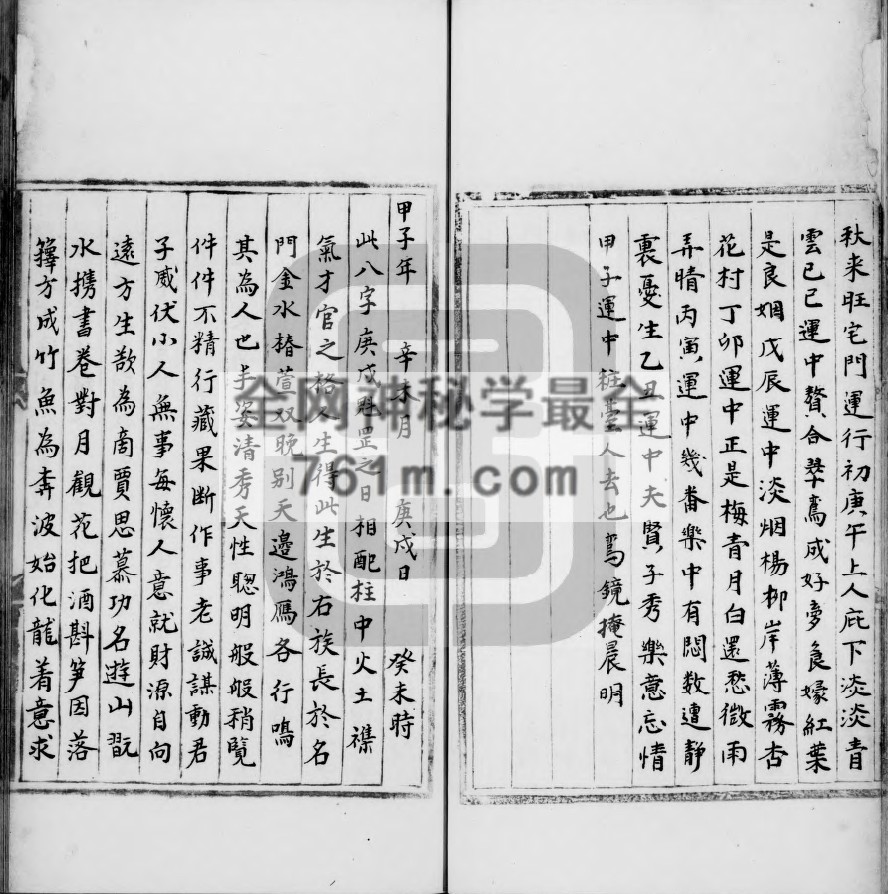 秋来旺宅門運行初庚午上人庇下淡淡青
雲己巳運中贅合擧鸞成好夢良嫁紅葉
是良姻戊辰運中淡烟楊柳岸薄霧杏
花村丁卯運中正是梅青月白還愁微雨
弄晴丙寅運中幾番樂中有悶数遭靜
裏憂生乙丑運中夫賢子秀樂意忘情
甲子運中粧臺人去也鸞鏡掩晨明
甲子年 辛未月 庚戌日 癸未時
此八字庚戌魁罡之日相配柱中火土襍
氣才官之格人生得此生於右族長於名
門金水椿萱双晚别天邊鴻鴈各行鳴
其為人也丰姿清秀天性聰明般般稍覽
件件不精行藏果断作事老誠謀動君
子威伏小人無事每懷人意就財源自向
遠方生欲為商賈思慕功名遊山翫
水携書卷對月觀花把酒斟笋因落
籜方成竹魚為奔波始化龍着意求
全网神秘学最全
761m.com